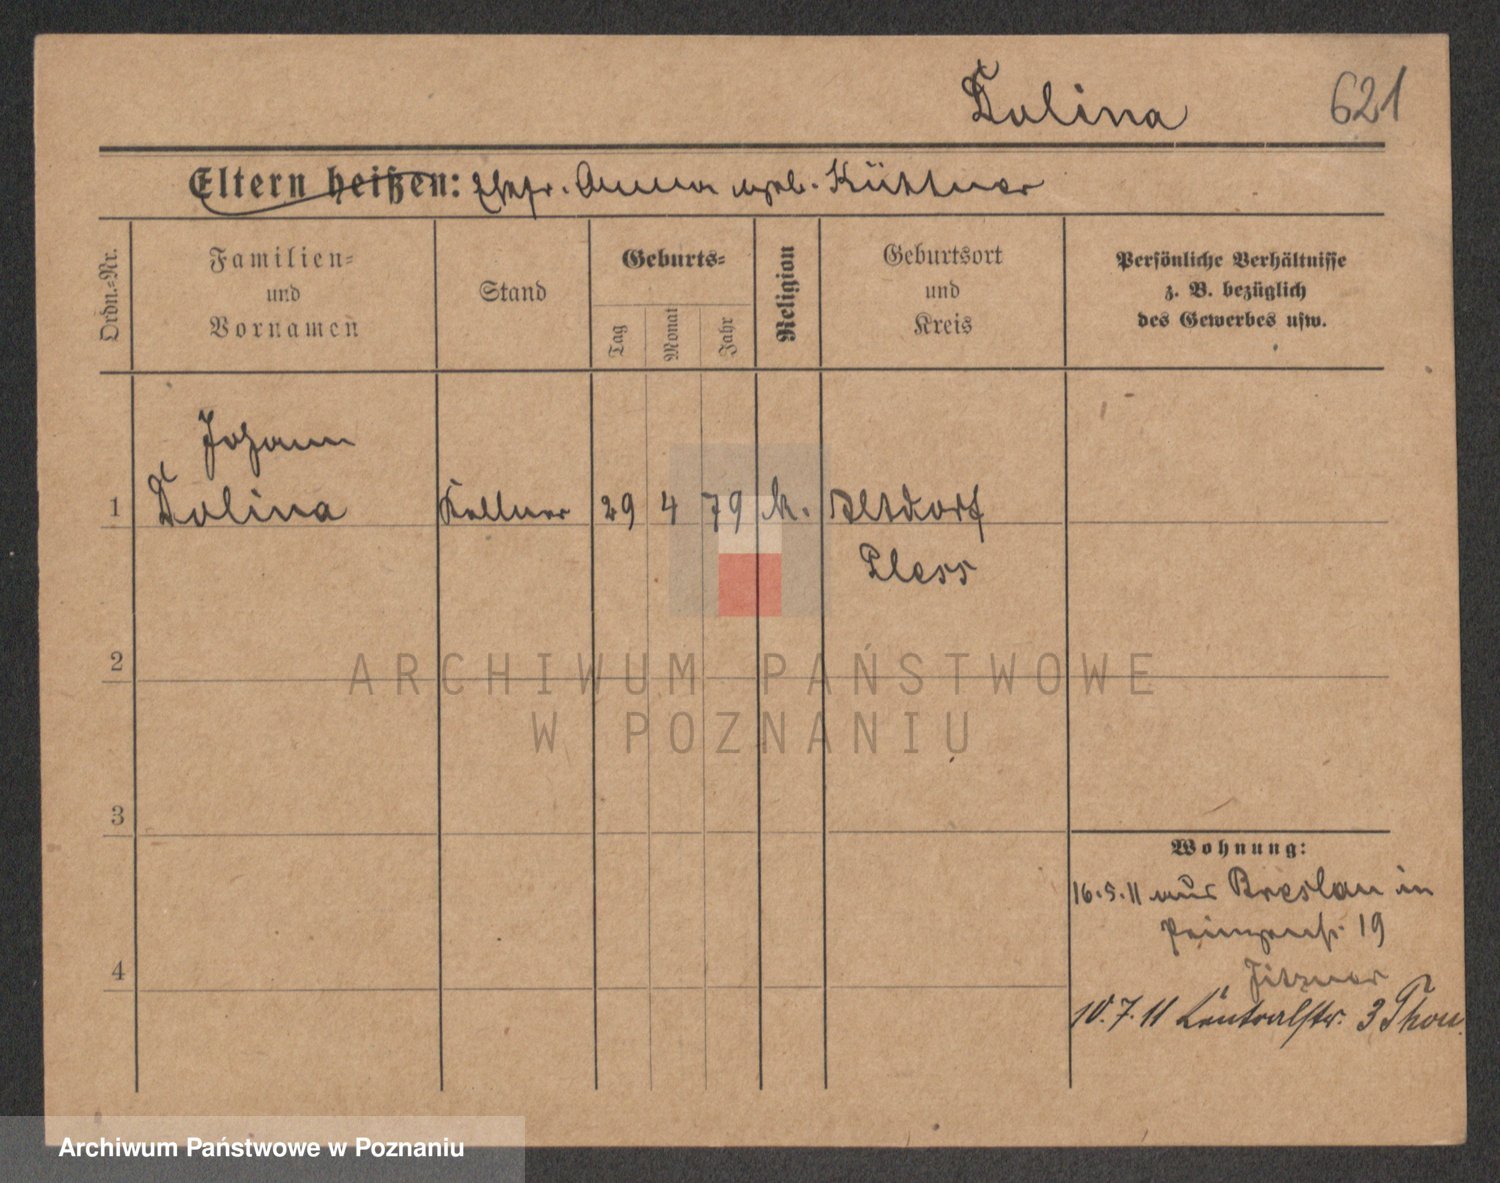 Dolina
621
Eltern heißen: Ehefr. Anna geb. Küttner
Ordn.-Nr.
Familien-
und
Vornamen
Stand
Geburts-
Tag
Monat
Jahr
Religion
Geburtsort
und
Kreis
Persönliche Verhältnisse
z. B. bezüglich
des Gewerbes usw.
Johann
1 Dolina Kellner 29 4 79 k. Altdorf
Pless
2
ARCHIWUM PAŃSTWOWE
W POZNANIU
3
Wohnung:
16.5.11 aus Breslau in
19
4
10.7.11 3
Archiwum Państwowe w Poznaniu